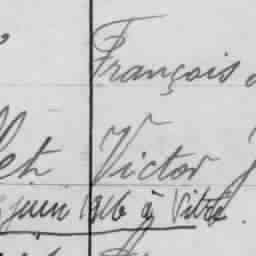 François
Victor J
juin 1916 à Vitré.